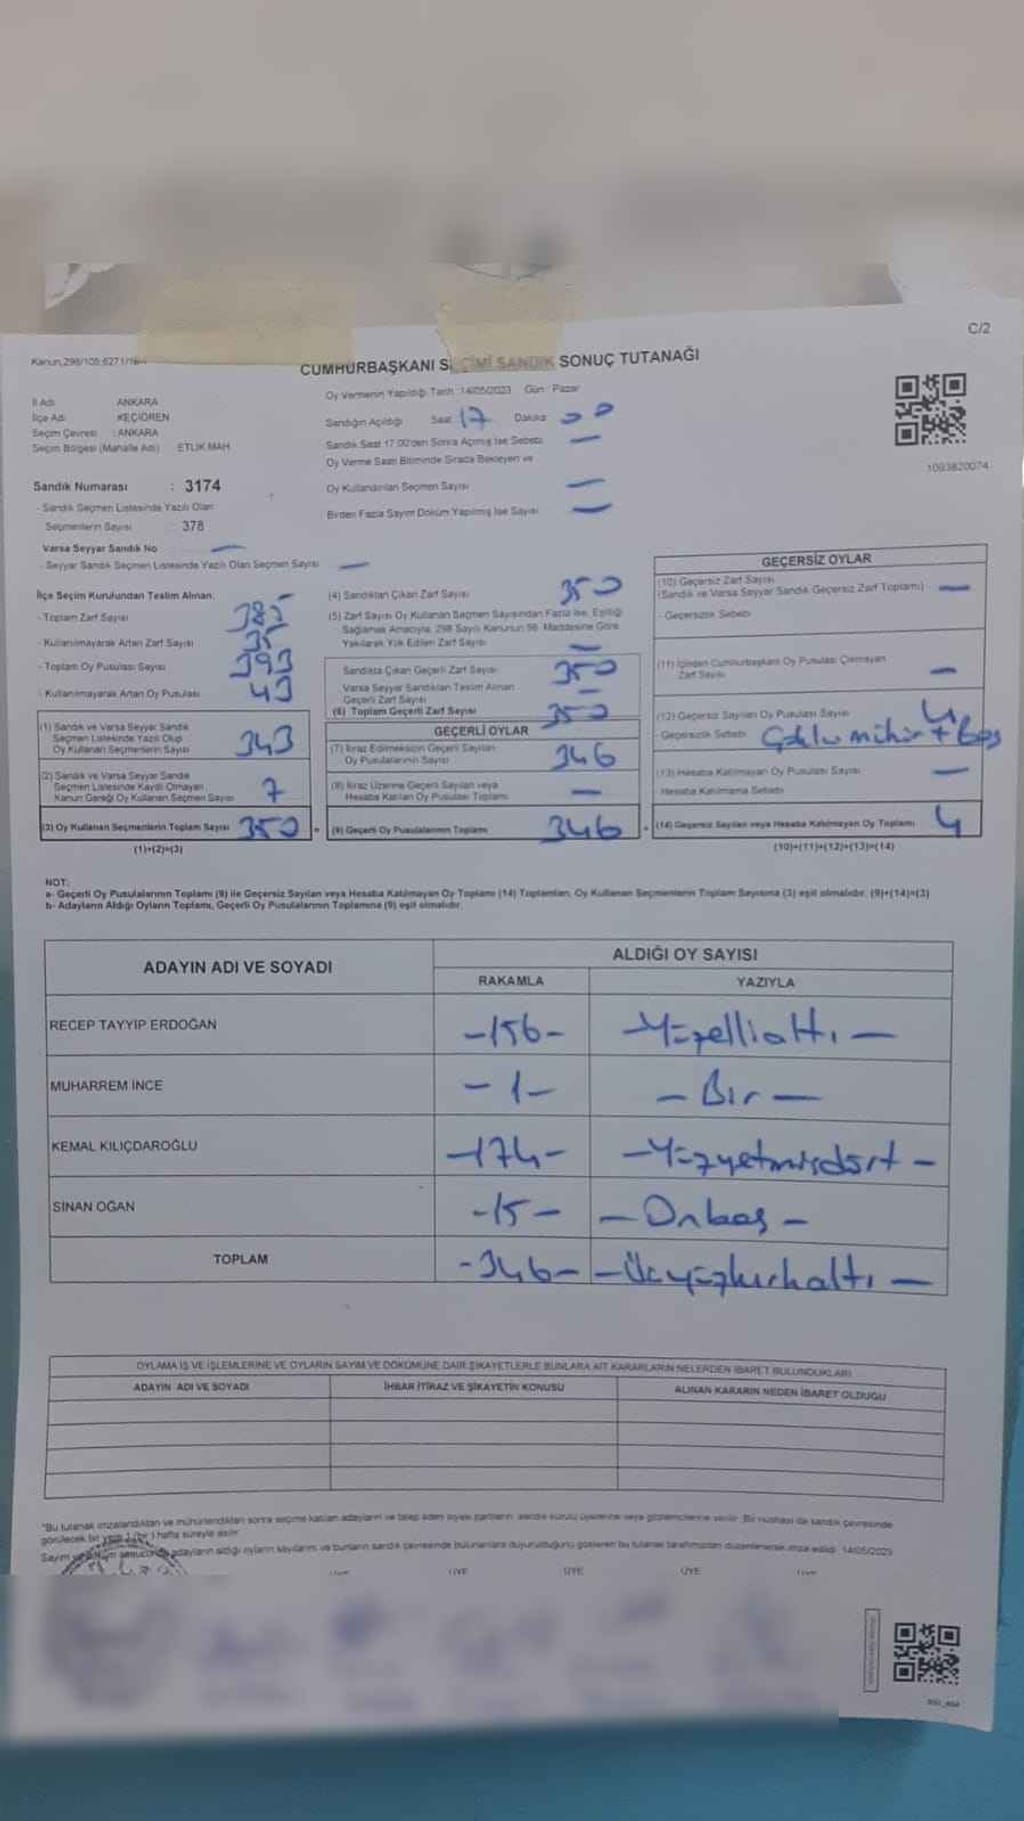 C/2
Kanun,298/105;6271/
CUMHURBAŞKANI SEÇİMİ SANDIK SONUÇ TUTANAĞI
Oy Vermenin Yapıldığı Tarih :14/05/2023 Gün : Pazar
İl Adı : ANKARA
İlçe Adı : KEÇİÖREN
Seçim Çevresi : ANKARA
Seçim Bölgesi (Mahalle Adı) : ETLİK MAH
Sandığın Açıldığı Saat 17 Dakika 00
Sandık Saat 17.00'den Sonra Açılmış İse Sebebi —
Oy Verme Saati Bitiminde Sırada Bekleyen ve
Oy Kullandırılan Seçmen Sayısı —
Birden Fazla Sayım Döküm Yapılmış İse Sayısı —
1093820074
Sandık Numarası : 3174
- Sandık Seçmen Listesinde Yazılı Olan
Seçmenlerin Sayısı : 378
Varsa Seyyar Sandık No —
- Seyyar Sandık Seçmen Listesinde Yazılı Olan Seçmen Sayısı —
İlçe Seçim Kurulundan Teslim Alınan;
- Toplam Zarf Sayısı 385
- Kullanılmayarak Artan Zarf Sayısı 35
- Toplam Oy Pusulası Sayısı 393
- Kullanılmayarak Artan Oy Pusulası 43
(1) Sandık ve Varsa Seyyar Sandık
Seçmen Listesinde Yazılı Olup
Oy Kullanan Seçmenlerin Sayısı 343
(2) Sandık ve Varsa Seyyar Sandık
Seçmen Listesinde Kayıtlı Olmayan
Kanun Gereği Oy Kullanan Seçmen Sayısı 7
(3) Oy Kullanan Seçmenlerin Toplam Sayısı 350
(1)+(2)=(3)
(4) Sandıktan Çıkan Zarf Sayısı 350
(5) Zarf Sayısı Oy Kullanan Seçmen Sayısından Fazla İse, Eşitliği
Sağlamak Amacıyla, 298 Sayılı Kanunun 98. Maddesine Göre
Yakılarak Yok Edilen Zarf Sayısı —
Sandıkta Çıkan Geçerli Zarf Sayısı 350
Varsa Seyyar Sandıktan Teslim Alınan
Geçerli Zarf Sayısı —
(6) Toplam Geçerli Zarf Sayısı 350
GEÇERLİ OYLAR
(7) İtiraz Edilmeksizin Geçerli Sayılan
Oy Pusulalarının Sayısı 346
(8) İtiraz Üzerine Geçerli Sayılan veya
Hesaba Katılan Oy Pusulası Toplamı —
(9) Geçerli Oy Pusulalarının Toplamı 346
GEÇERSİZ OYLAR
(10) Geçersiz Zarf Sayısı
(Sandık ve Varsa Seyyar Sandık Geçersiz Zarf Toplamı) —
- Geçersizlik Sebebi
(11) İçinden Cumhurbaşkanı Oy Pusulası Çıkmayan
Zarf Sayısı —
(12) Geçersiz Sayılan Oy Pusulası Sayısı 4
- Geçersizlik Sebebi Çoklu mühür + boş
(13) Hesaba Katılmayan Oy Pusulası Sayısı —
Hesaba Katılmama Sebebi
(14) Geçersiz Sayılan veya Hesaba Katılmayan Oy Toplamı 4
(10)+(11)+(12)+(13)=(14)
NOT:
a- Geçerli Oy Pusulalarının Toplamı (9) ile Geçersiz Sayılan veya Hesaba Katılmayan Oy Toplamı (14) Toplamları, Oy Kullanan Seçmenlerin Toplam Sayısına (3) eşit olmalıdır. (9)+(14)=(3)
b- Adayların Aldığı Oyların Toplamı, Geçerli Oy Pusulalarının Toplamına (9) eşit olmalıdır.
ADAYIN ADI VE SOYADI ALDIĞI OY SAYISI
RAKAMLA YAZIYLA
RECEP TAYYİP ERDOĞAN -156- -Yüzellialtı-
MUHARREM İNCE -1- -Bir-
KEMAL KILIÇDAROĞLU -174- -Yüzyetmişdört-
SİNAN OĞAN -15- -Onbeş-
TOPLAM -346- -Üçyüzkırkaltı-
OYLAMA İŞ VE İŞLEMLERİNE VE OYLARIN SAYIM VE DÖKÜMÜNE DAİR ŞİKAYETLERLE BUNLARA AİT KARARLARIN NELERDEN İBARET BULUNDUKLARI
ADAYIN ADI VE SOYADI İHBAR İTİRAZ VE ŞİKAYETİN KONUSU ALINAN KARARIN NEDEN İBARET OLDUĞU
"Bu tutanak imzalandıktan ve mühürlendikten sonra seçime katılan adayların ve talep eden siyasi partilerin sandık kurulu üyelerine veya gözlemcilerine verilir. Bir nüshası da sandık çevresinde
görülecek bir yere 1 (bir) hafta süreyle asılır.
Sayım sonucunda adayların aldığı oyların sayılarını ve bunların sandık çevresinde bulunanlara duyurulduğunu gösteren bu tutanak tarafımızdan düzenlenerek imza edildi. 14/05/2023
ÜYE ÜYE ÜYE